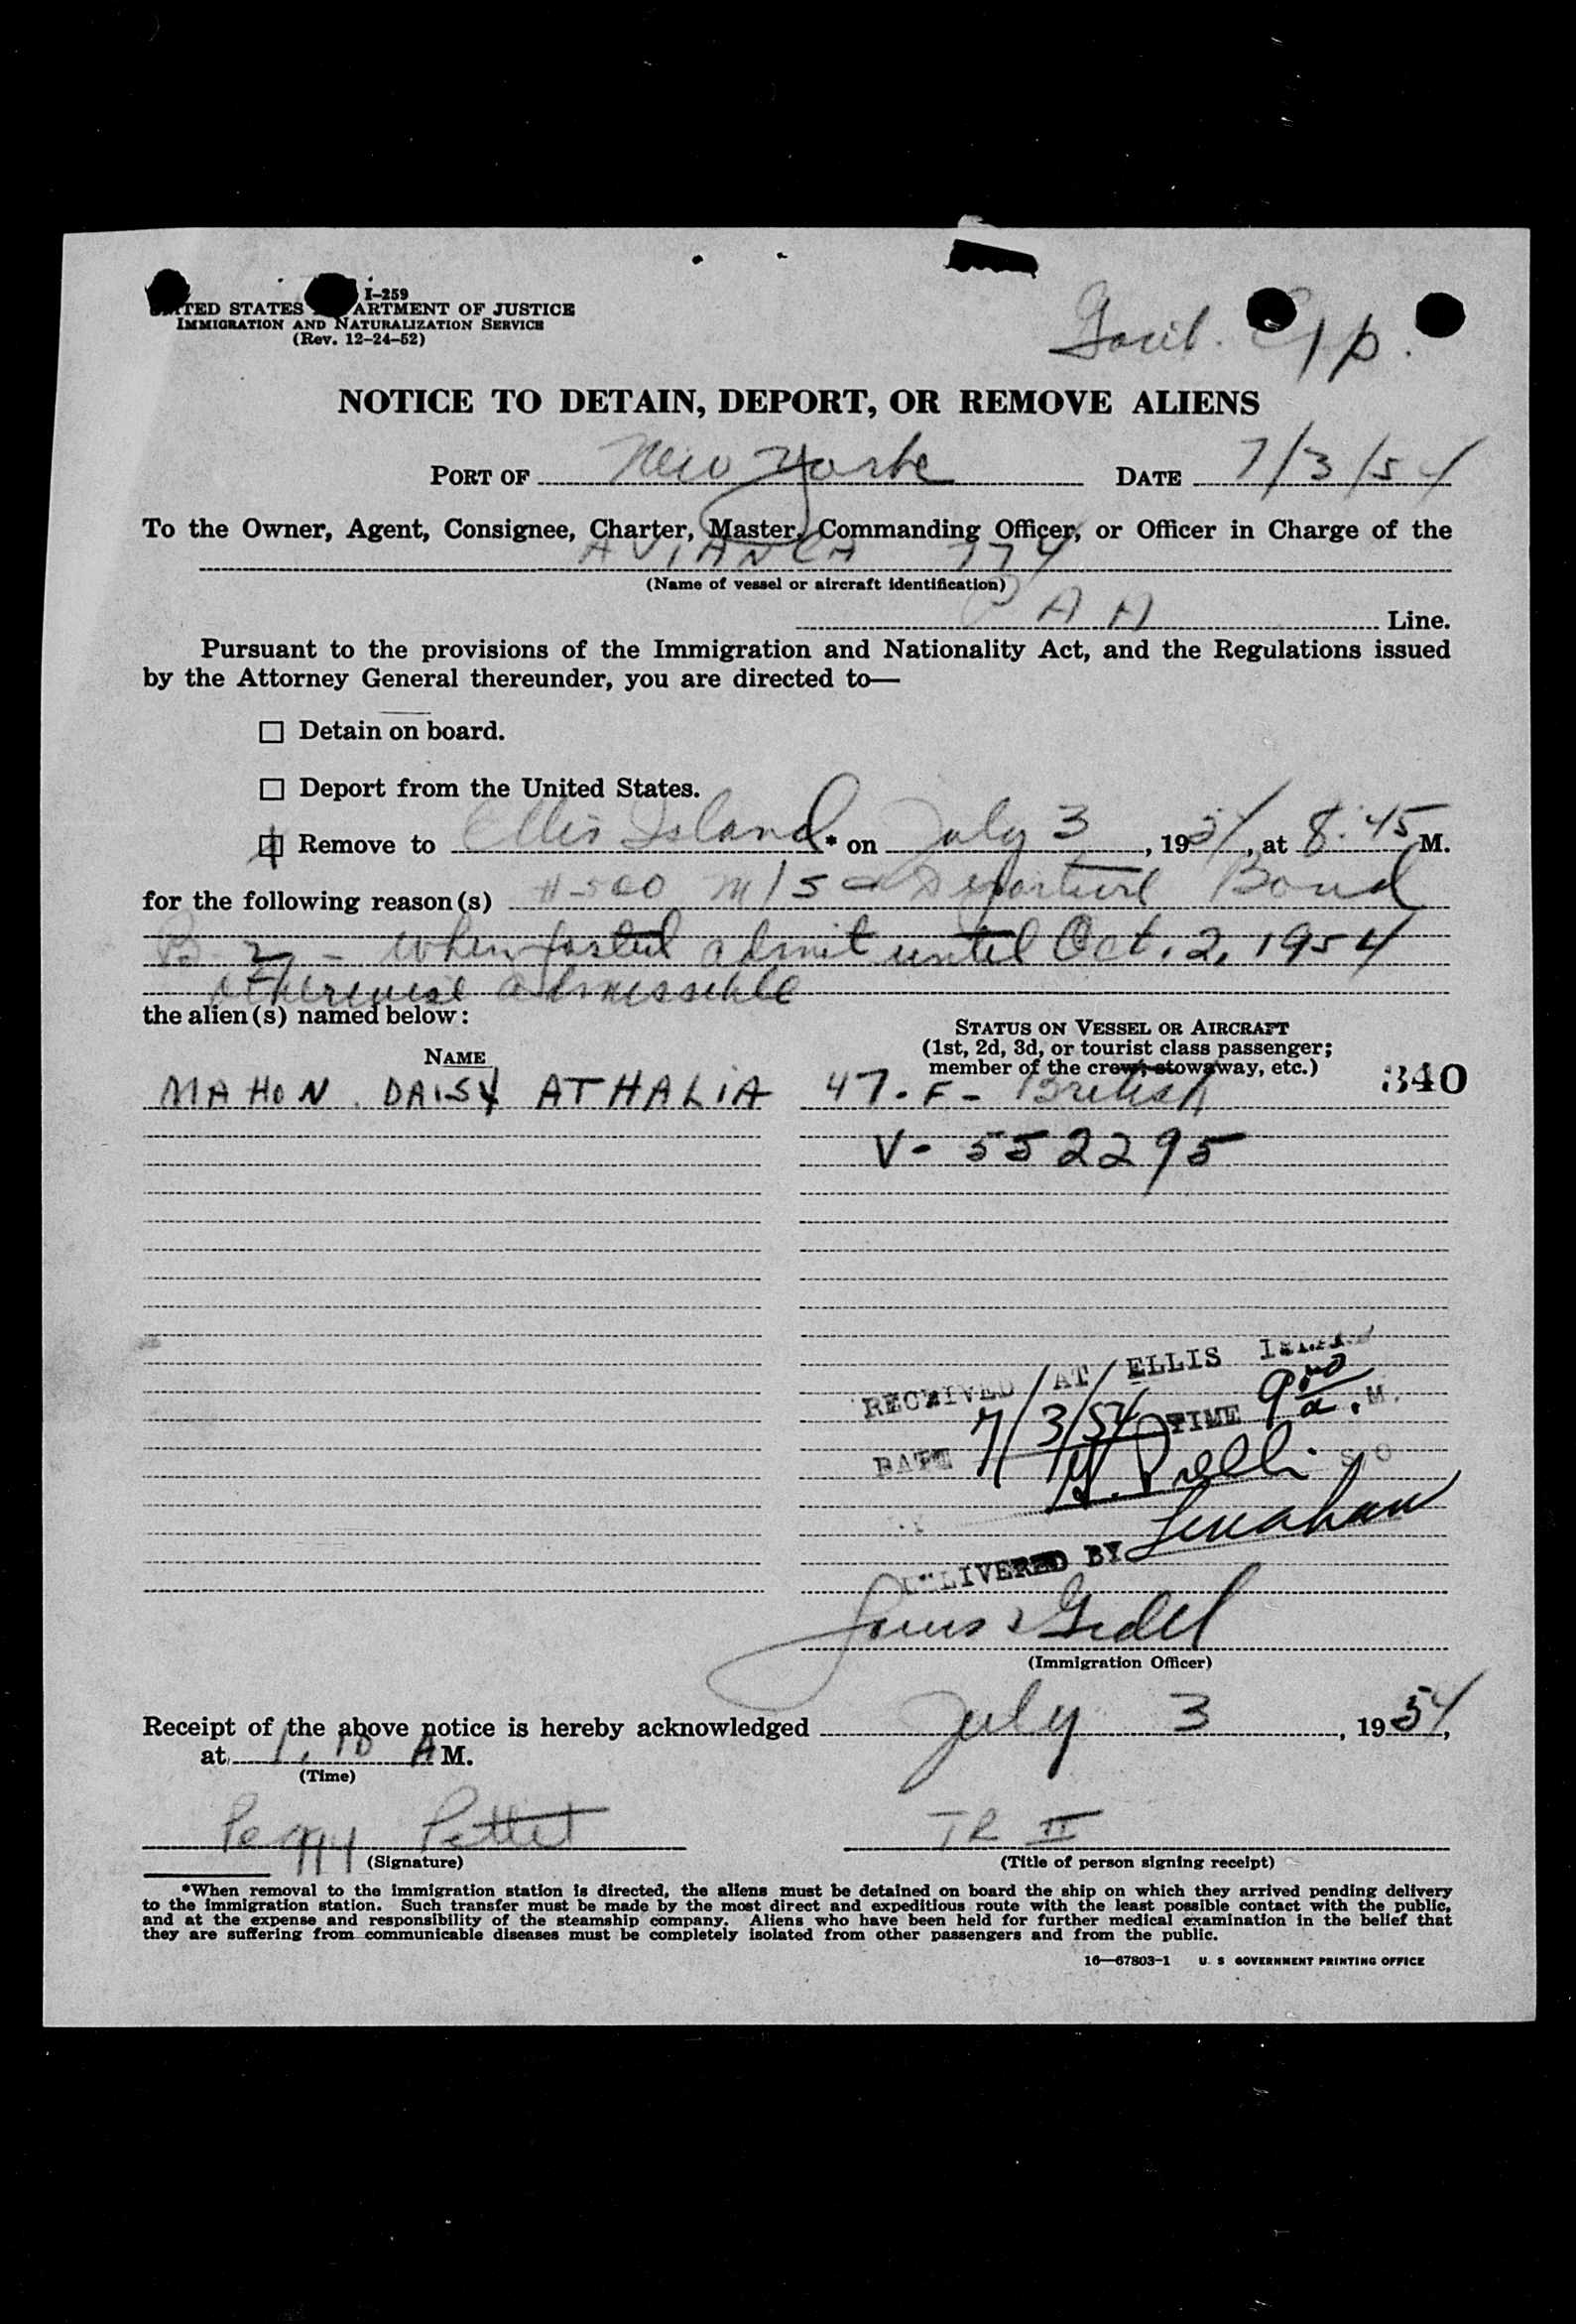 I-259
TED STATES ARTMENT OF JUSTICE
IMMIGRATION AND NATURALIZATION SERVICE
(Rev. 12-24-52)
NOTICE TO DETAIN, DEPORT, OR REMOVE ALIENS
PORT OF New York DATE 7/3/54
To the Owner, Agent, Consignee, Charter, Master, Commanding Officer, or Officer in Charge of the
AVIANCA 774
(Name of vessel or aircraft identification)
Line.
Pursuant to the provisions of the Immigration and Nationality Act, and the Regulations issued
by the Attorney General thereunder, you are directed to—
Detain on board.
Deport from the United States.
Remove to Ellis Island * on July 3, 1954, at 8:45 M.
for the following reason(s) 500 Departure Bond
B-2 - When posted admit until Oct. 2, 1954
otherwise admissible
the alien(s) named below:
NAME
STATUS ON VESSEL OR AIRCRAFT
(1st, 2d, 3d, or tourist class passenger;
member of the crew, stowaway, etc.)
340
MAHON. DAISY ATHALIA 47. F - British
V- 552295
RECEIVED AT ELLIS ISLAND
DATE 7/3/54 TIME 9 00 a.M.
DELIVERED BY Lenahan
(Immigration Officer)
Receipt of the above notice is hereby acknowledged July 3, 1954,
at 1.10 A M.
(Time)
Peggy Pettet TR II
(Signature) (Title of person signing receipt)
*When removal to the immigration station is directed, the aliens must be detained on board the ship on which they arrived pending delivery
to the immigration station. Such transfer must be made by the most direct and expeditious route with the least possible contact with the public,
and at the expense and responsibility of the steamship company. Aliens who have been held for further medical examination in the belief that
they are suffering from communicable diseases must be completely isolated from other passengers and from the public.
16—67803-1 U. S GOVERNMENT PRINTING OFFICE